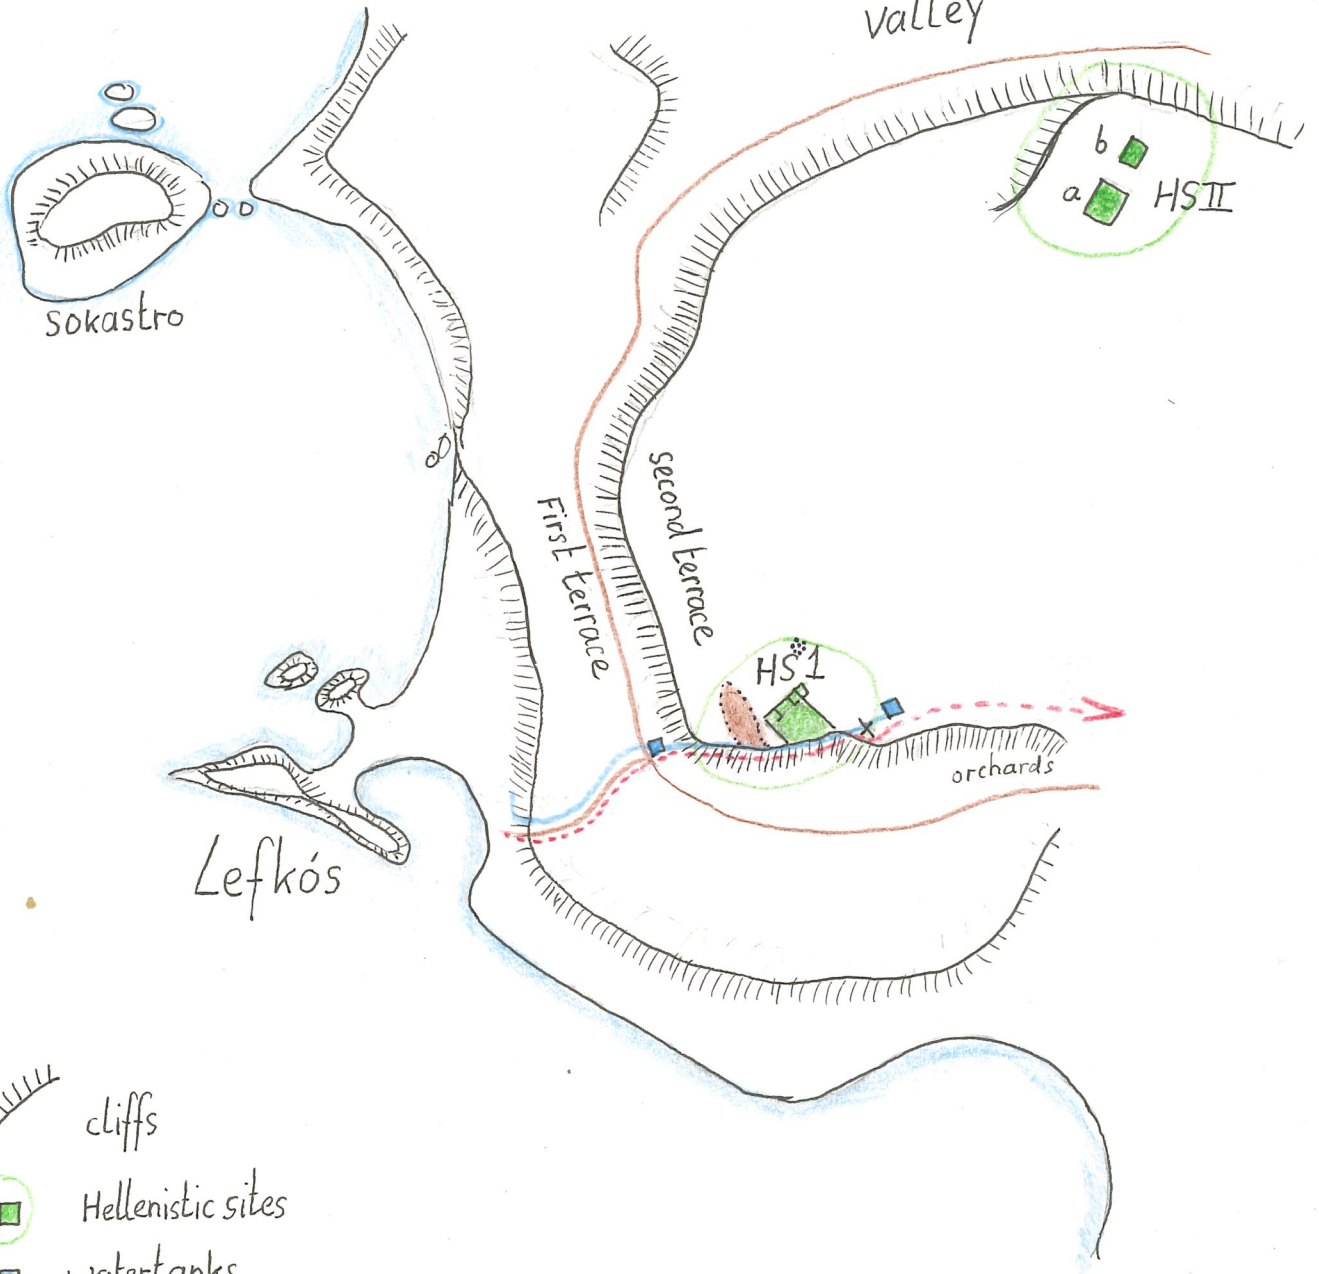 Valley
b
a
HSII
Sokastro
First terrace
second terrace
HS1
x
orchards
Lefkós
cliffs
Hellenistic sites
watertanks